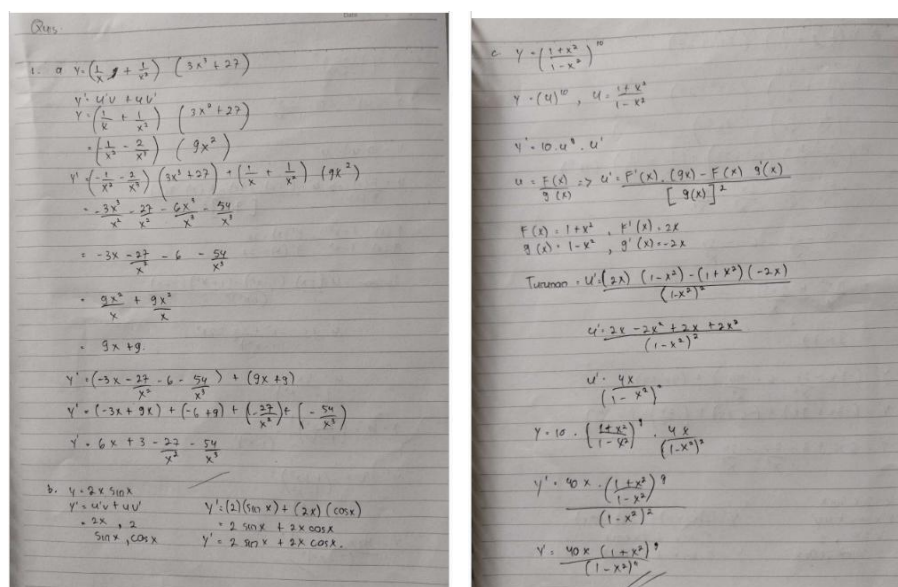 Date
Ques
1. a y = (1/x + 1/x²) (3x³ + 27)
y' = u'v + uv'
y = (1/x + 1/x²) (3x³ + 27)
= (1/x² - 2/x³) (9x²)
y' = (-1/x² - 2/x³) (3x³ + 27) + (1/x + 1/x²) (9x²)
= -3x³/x² - 27/x² - 6x³/x³ - 54/x³
= -3x - 27/x² - 6 - 54/x³
= 9x²/x + 9x²/x
= 9x + 9.
y' = (-3x - 27/x² - 6 - 54/x³) + (9x + 9)
y' = (-3x + 9x) + (-6 + 9) + (-27/x²) + (-54/x³)
y' = 6x + 3 - 27/x² - 54/x³
b. y = 2x sin x
y' = u'v + uv'
= 2x , 2
sin x , cos x
y' = (2)(sin x) + (2x)(cos x)
= 2 sin x + 2x cos x
y' = 2 sin x + 2x cos x.
c. y = ((1+x²)/(1-x²))¹⁰
y = (u)¹⁰ , u = (1+x²)/(1-x²)
y' = 10 . u⁹ . u'
u = F(x)/g(x) => u' = (F'(x) . (gx) - F(x) g'(x))/[g(x)]²
F(x) = 1+x² , F'(x) = 2x
g(x) = 1-x² , g'(x) = -2x
Turunan = u' = ((2x) (1-x²) - (1+x²) (-2x))/(1-x²)²
u' = (2x - 2x² + 2x + 2x²)/(1-x²)²
u' = 4x/(1-x²)²
y = 10 . ((1+x²)/(1-x²))⁹ . 4x/(1-x²)²
y' = 40x . ((1+x²)/(1-x²))⁹/(1-x²)²
y' = 40x (1+x²)⁹/(1-x²)⁴